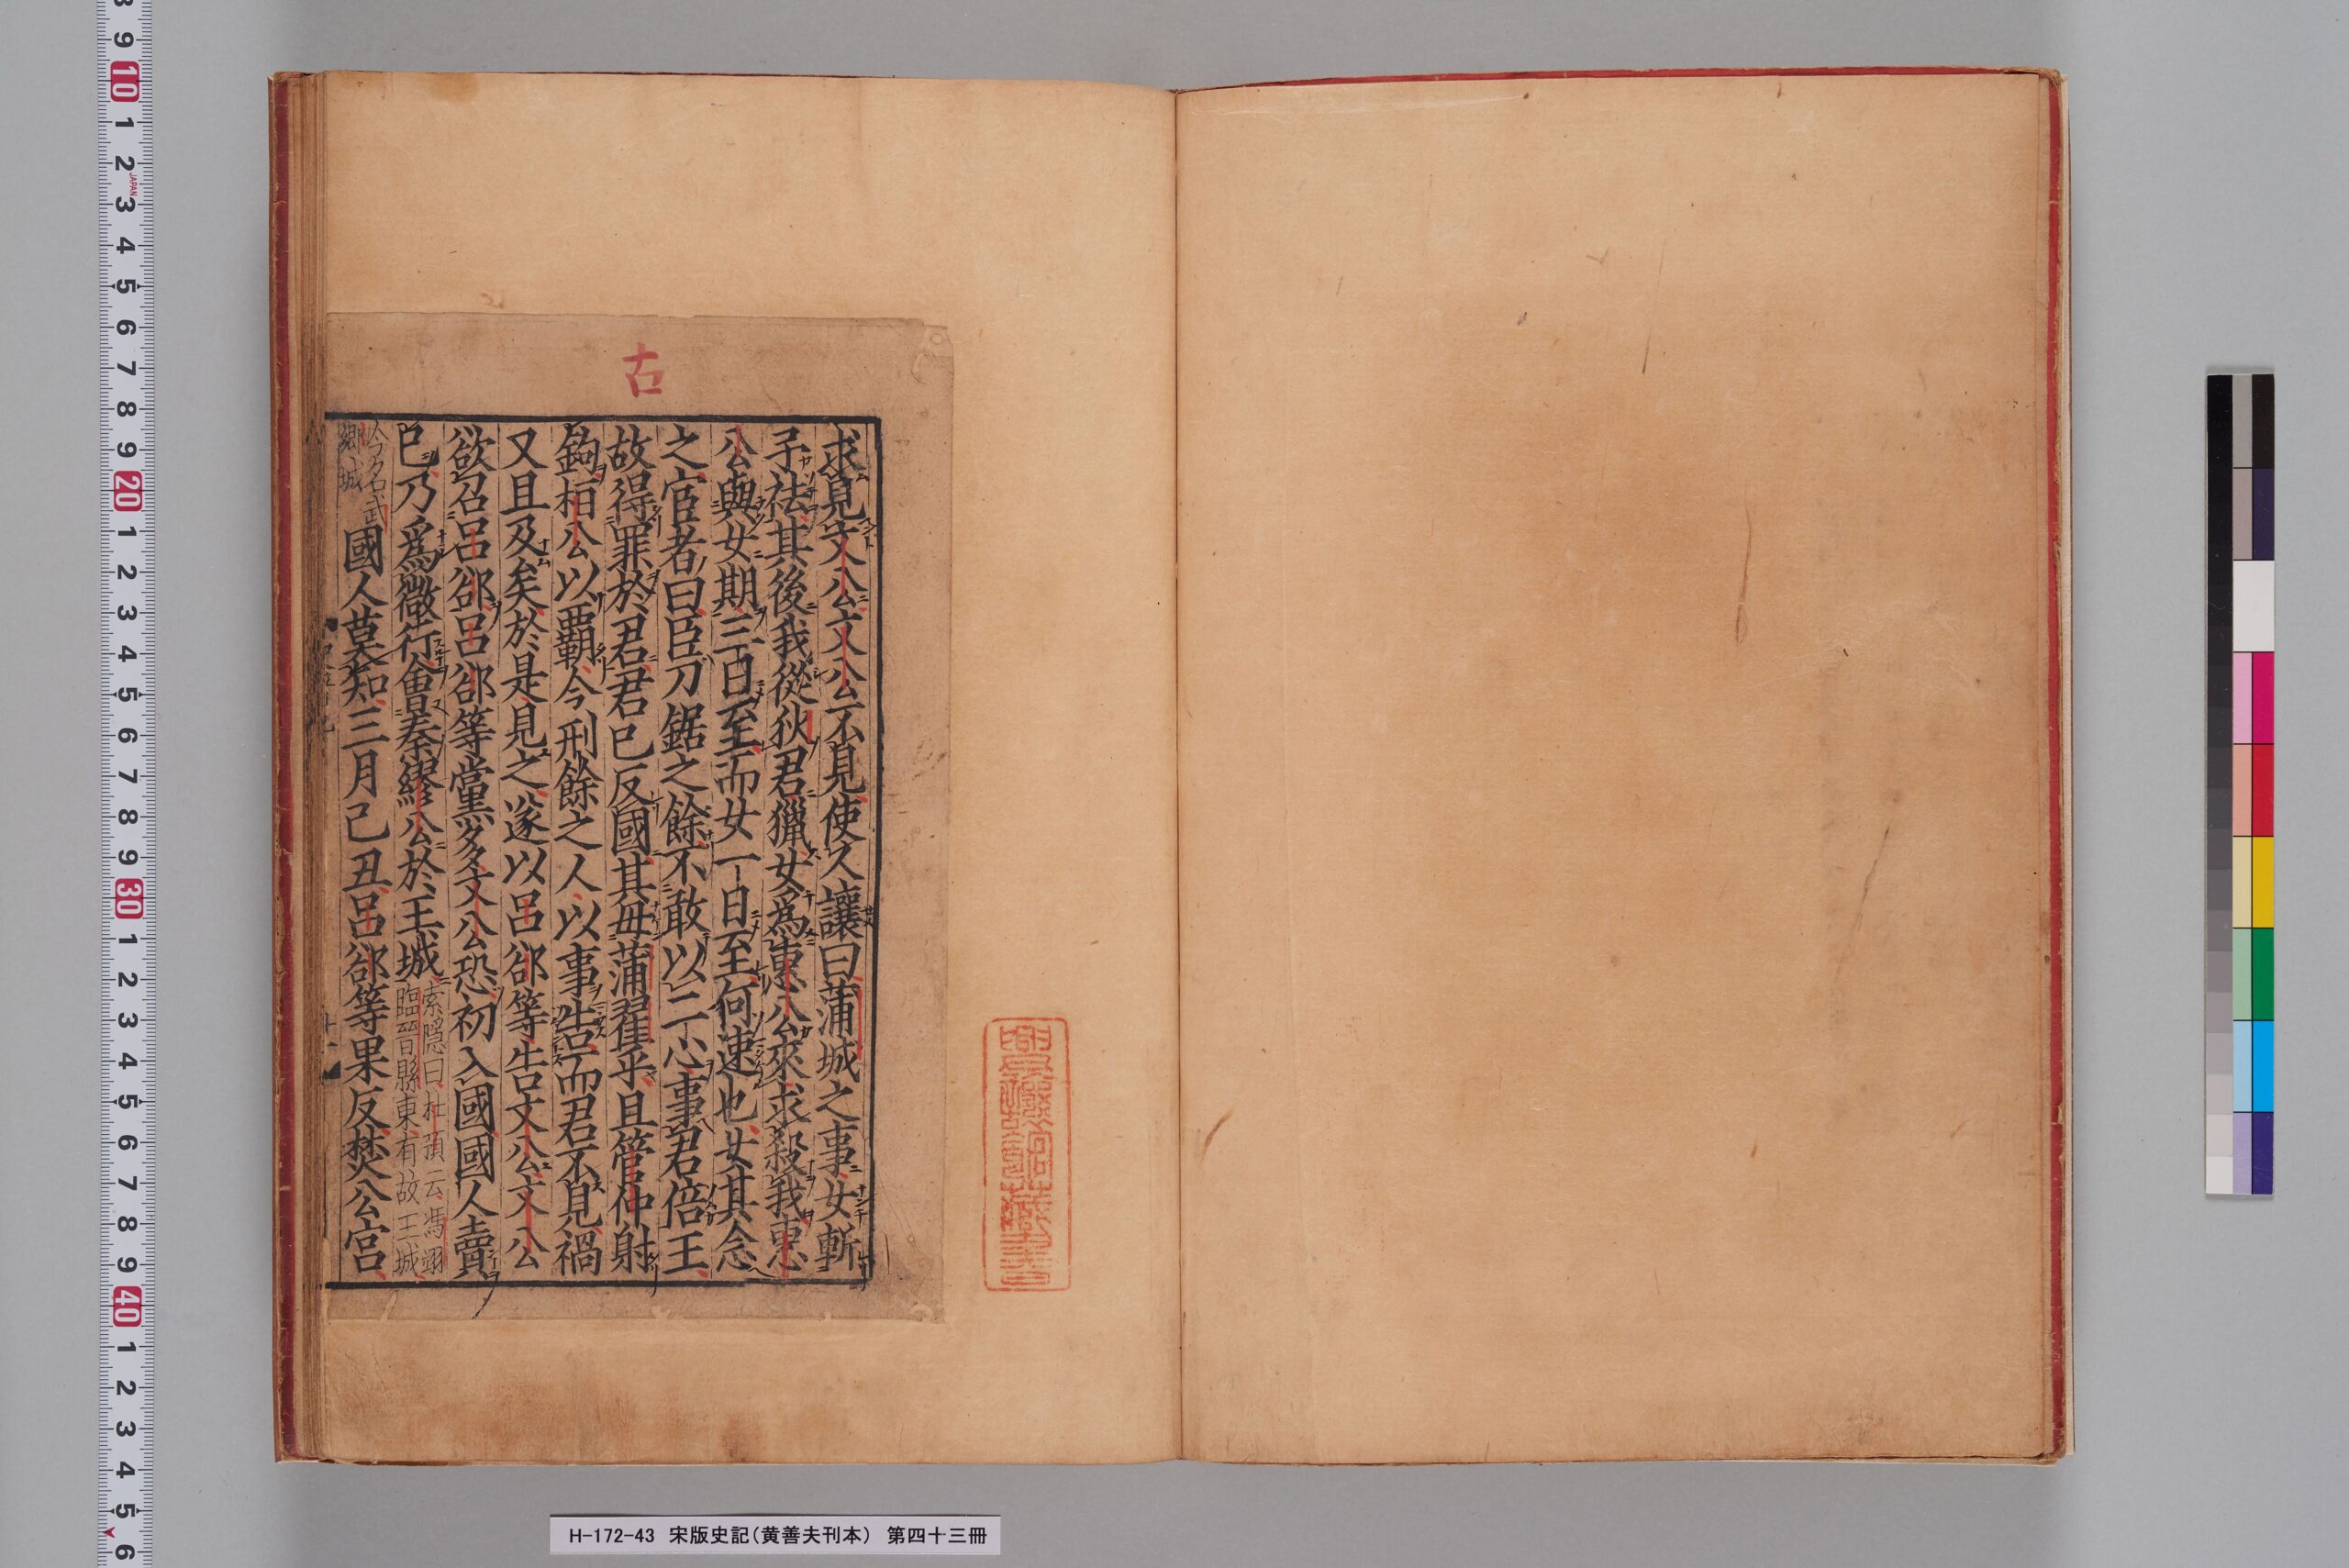 古
求見文公文公不見使人讓曰蒲城之事女斬
予袪其後我從狄君獵女爲惠公來求殺我惠
公與女期三日至而女一日至何速也女其念
之宦者曰臣刀鋸之餘不敢以二心事君倍主
故得罪於君君已反國其毋蒲翟乎且管仲射
鉤桓公以霸今刑餘之人以事告而君不見禍
又且及矣於是見之遂以呂郤等告文公文公
欲召呂郤呂郤等黨多文公恐初入國國人賣
已乃爲微行會秦繆公於王城索隱曰杜預云馮翊
臨晉縣東有故王城
今名武
鄉城國人莫知三月己丑呂郤等果反焚公宮
H-172-43 宋版史記（黄善夫刊本） 第四十三冊